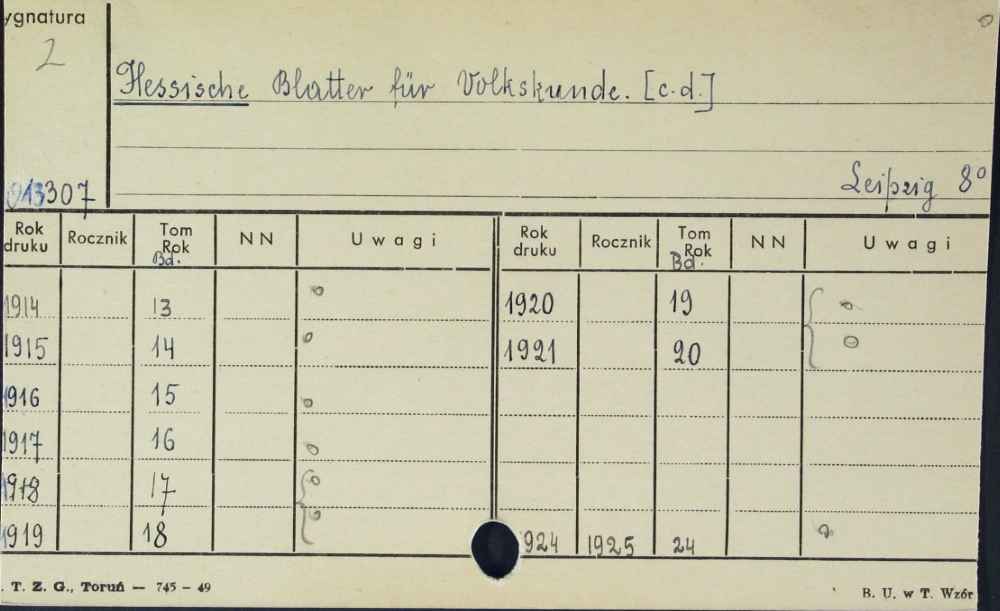 ygnatura
2
Hessische Blatter für Volkskunde. [c.d.]
Leipzig 8°
013307
Rok druku Rocznik Tom Rok Bd. NN Uwagi Rok druku Rocznik Tom Rok Bd. NN Uwagi
1914 13 1920 19
1915 14 1921 20
1916 15
1917 16
1918 17
1919 18 924 1925 24
. T. Z. G., Toruń — 745 – 49
B. U. w T. Wzór